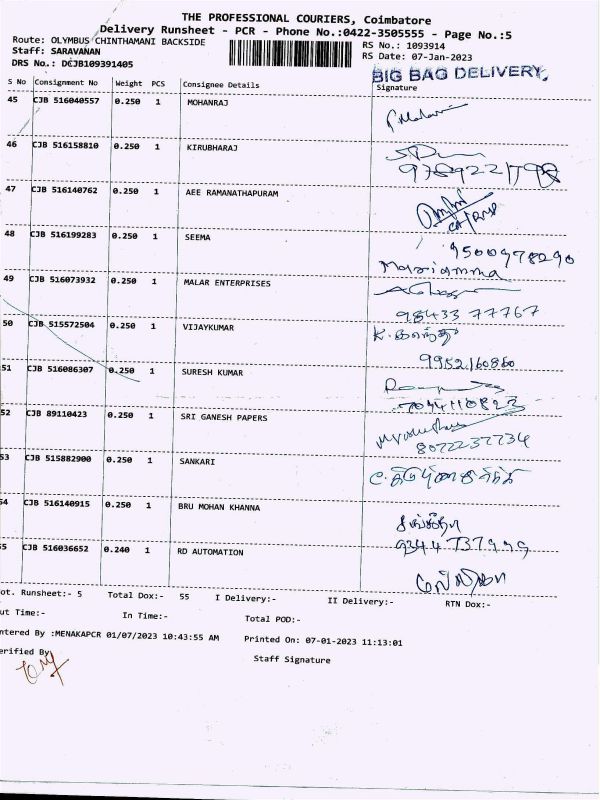 THE PROFESSIONAL COURIERS, Coimbatore
Delivery Runsheet - PCR - Phone No.:0422-3505555 - Page No.:5
Route: OLYMBUS CHINTHAMANI BACKSIDE
RS No.: 1093914
Staff: SARAVANAN
RS Date: 07-Jan-2023
DRS No.: DCJB109391405
BIG BAG DELIVERY
S No Consignment No Weight PCS Consignee Details Signature
45 CJB 516040557 0.250 1 MOHANRAJ
46 CJB 516158810 0.250 1 KIRUBHARAJ
9789221798
47 CJB 516140762 0.250 1 AEE RAMANATHAPURAM
48 CJB 516199283 0.250 1 SEEMA
9500978290
Mariamma
49 CJB 516073932 0.250 1 MALAR ENTERPRISES
98433 77767
50 CJB 515572504 0.250 1 VIJAYKUMAR
9952160860
51 CJB 516086307 0.250 1 SURESH KUMAR
7094110823
52 CJB 89110423 0.250 1 SRI GANESH PAPERS
8072237734
53 CJB 515882900 0.250 1 SANKARI
54 CJB 516140915 0.250 1 BRU MOHAN KHANNA
9344 737999
55 CJB 516036652 0.240 1 RD AUTOMATION
ot. Runsheet:- 5 Total Dox:- 55 I Delivery:- II Delivery:- RTN Dox:-
ut Time:- In Time:- Total POD:-
ntered By :MENAKAPCR 01/07/2023 10:43:55 AM Printed On: 07-01-2023 11:13:01
erified By
Staff Signature